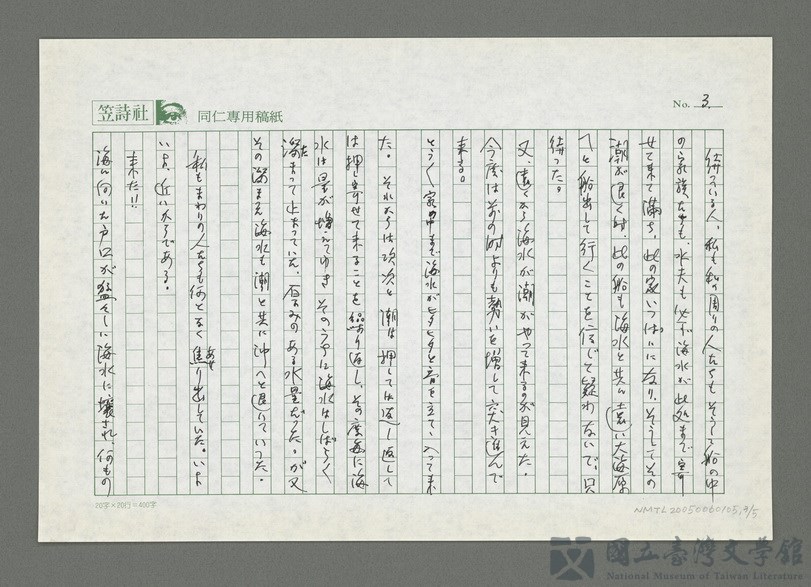 笠詩社
同仁専用稿紙
No. 3
待っている人、私も私の周りの人たちもそうして船の中
の家族たちも、水夫も必ず海水が此処まで寄
せて来て満ち、此の家いっぱいになり、そうしてその
潮が退く時、此の船も海水と共に遠い大海原
へと船出して行くことを信じて疑わないで、只
待った。
又、遠くから海水が潮がやって来るのが見えた。
今度は前の時よりも勢いを増して突き進んで
来る。
とうとう家の中まで海水がヒタヒタと音を立て、入って来
た。それからは次次と潮は押しては返し返して
は押し寄せて来ることを繰り返し、その度毎に海
水は量が増えてゆき その うちに海水はしばらく
溜まって止まっていた。厚みのある水量だった。が又
その溜まった海水も潮と共に沖へと退いていった。
私もまわりの人たちも何となく焦り出していた。いよ
あせ
いよ、近いからである。
来た!!
海に向いた戸口が猛々しい海水に壊され、何もの
20字×20行=400字
NMTL20050060105,3/5
國立臺灣文學館
National Museum of Taiwan Literature